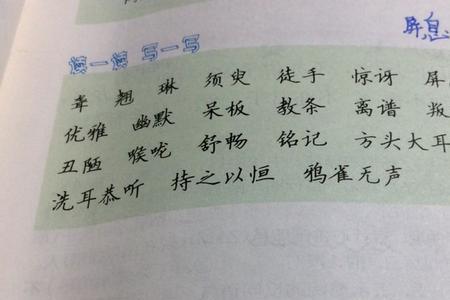 屏息
读一读 写一写
翘 琳 须臾 徒手 惊讶 屏
优雅 幽默 呆板 教条 离谱 叛
丑陋 喉咙 舒畅 铭记 方头大耳
洗耳恭听 持之以恒 鸦雀无声